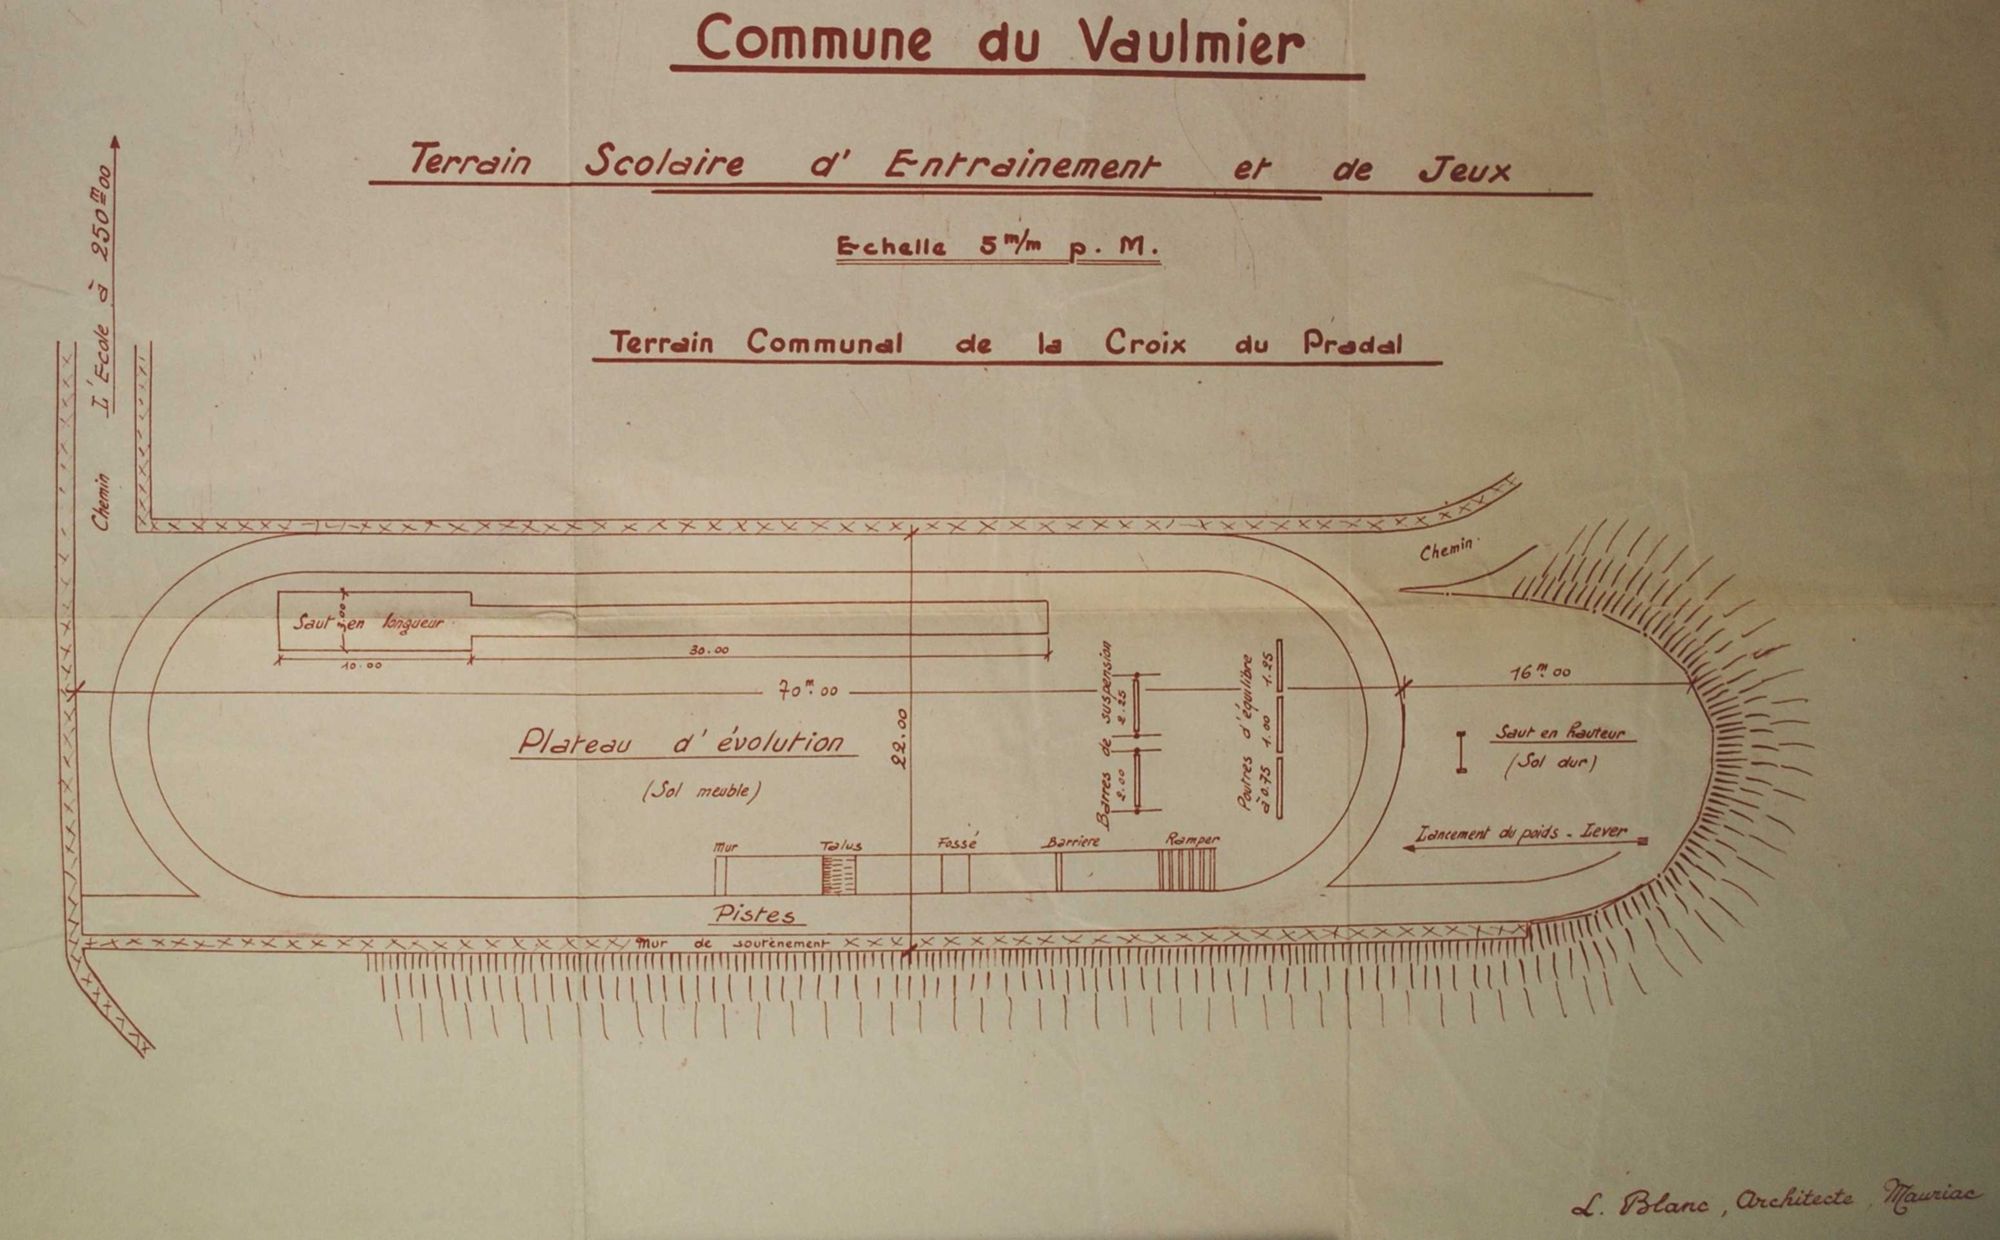 Commune du Vaulmier
Terrain Scolaire d' Entrainement et de Jeux
Echelle 5 m/m p. M.
Terrain Communal de la Croix du Pradal
Chemin L'Ecole à 250m00
Chemin
Saut en longueur
3.00
10.00
30.00
70m.00
16m.00
22.00
Plateau d' évolution
(Sol meuble)
Barres de suspension
2.00 2.25
Poutres d'équilibre
à 0.75 1.00 1.25
Saut en hauteur
(Sol dur)
Lancement du poids - Lever
Mur Talus Fossé Barriere Ramper
Pistes
Mur de soutènement
L. Blanc, Architecte, Mauriac